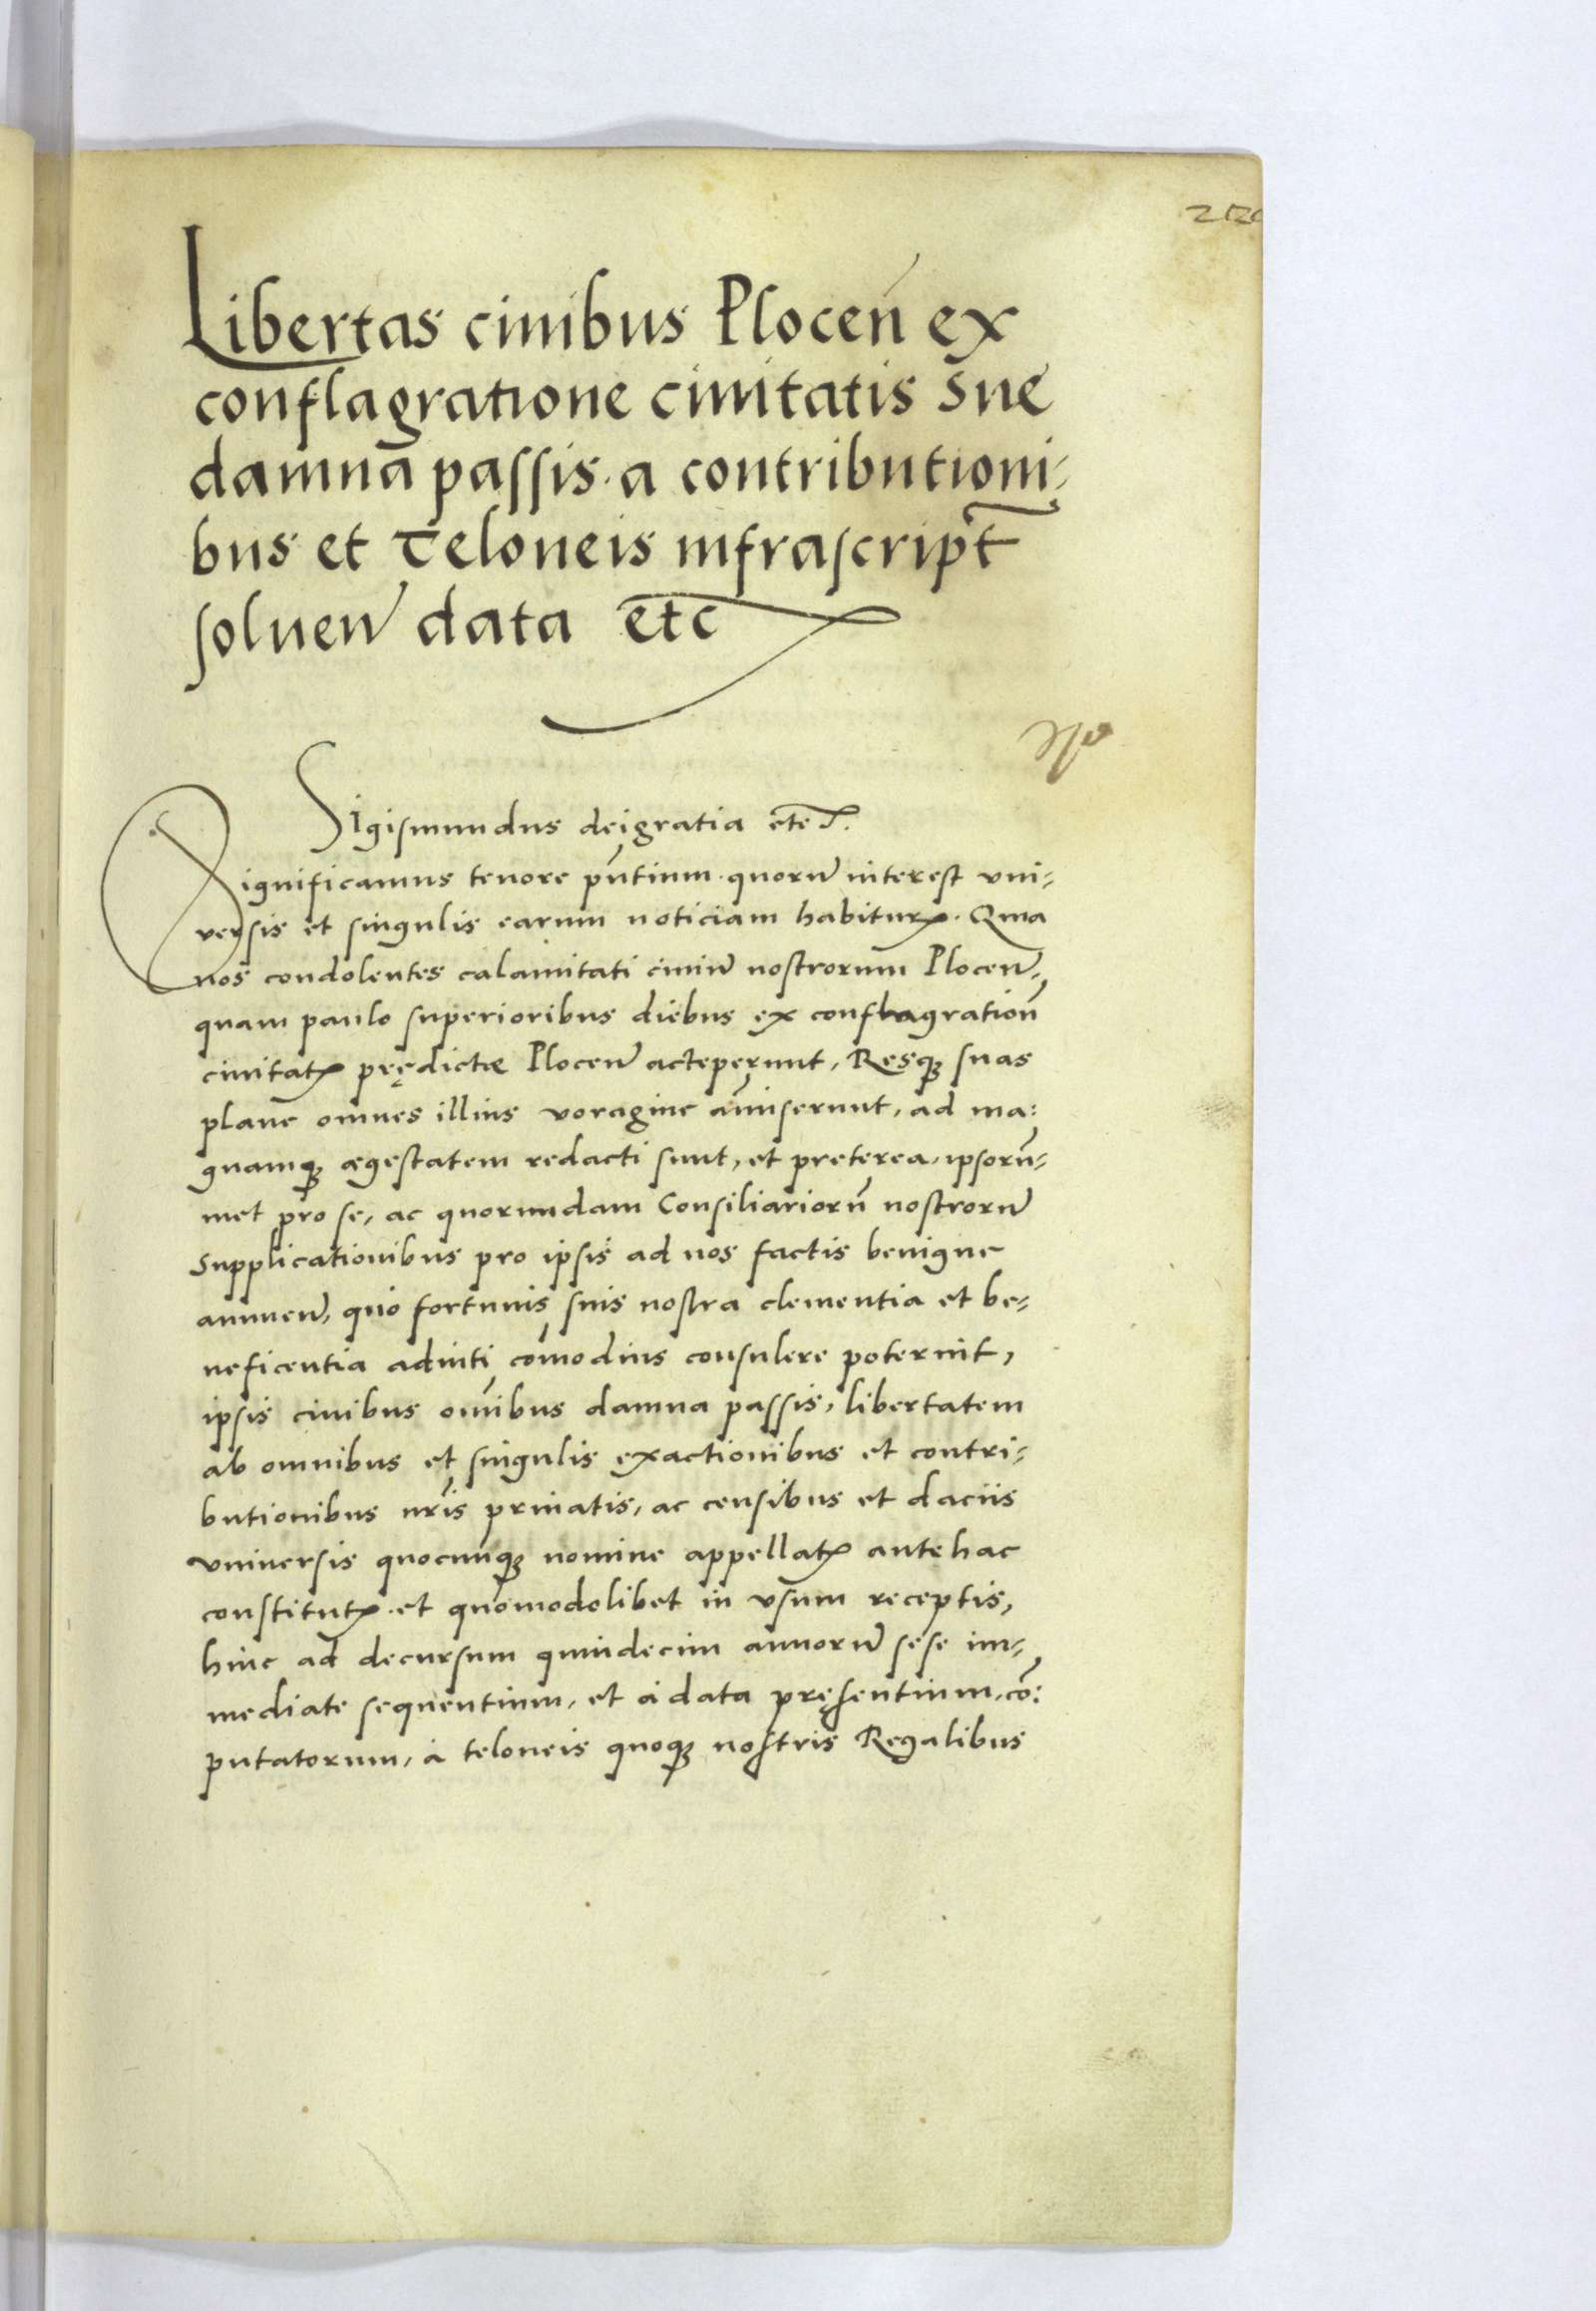 Libertas ciuibus Plocen̄ ex
conflagratione ciuitatis suę
damna passis. a contributioni-
bus et Teloneis infrascript̄
soluen̄ data etc̄
Sigismundus dei gratia etc̄.
Significamus tenore pn̄tium. quorū interest vni-
versis et singulis earum noticiam haбiturꝭ. Quia
nos condolentes calamitati ciuiū nostrorum Plocen̄,
quam paulo superioribus diebus ex conflagration̄
ciuitatꝭ prędictæ Plocen̄ acceperunt, Resqꝫ suas
plane omnes illius voragine amiserunt, ad ma:
gnamqꝫ ægestatem redacti sunt, et preterea, ipsorū-
met pro se, ac quorundam Consiliariorū nostrorū
Supplicationibus pro ipsis ad nos factis benigne
annuen̄, quo fortunis suis nostra clementia et be-
neficentia adiuti, com̄odius consulere poterint,
ipsis ciuibus om̄ibus damna passis, libertatem
ab omnibus et singulis exactionibus et contri-
butionibus nr̄is priuatis, ac censibus et daciis
vniuersis quocunqꝫ nomine appellatꝭ antehac
constitutꝭ. et quomodolibet in vsum receptis,
hinc ad decursum quindecim annorū sese im-
mediate sequentium, et à data pręsentium, cō:
putatorum, à teloneis quoqꝫ nostris Regalibus